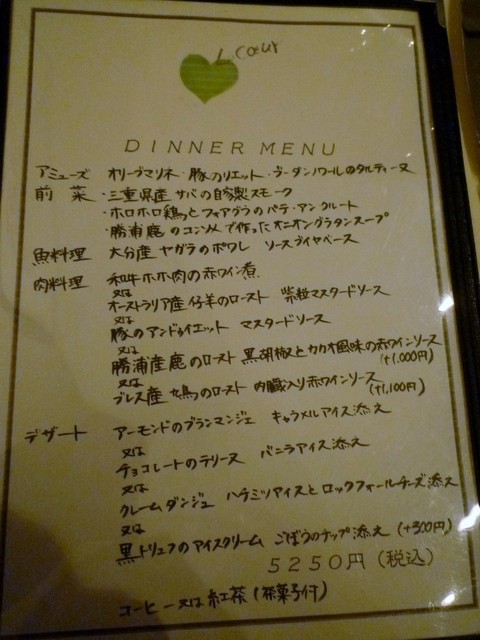 Le Cœur
DINNER MENU
アミューズ オリーブマリネ・豚のリエット・ブーダンノワールのタルティーヌ
前菜 ・三重県産 サバの自家製スモーク
・ホロホロ鶏とフォアグラのパテ・アンクルート
・勝浦鹿のコンソメで作ったオニオングラタンスープ
魚料理 大分産 ヤガラのポワレ ソースブイヤベース
肉料理 和牛ホホ肉の赤ワイン煮
又は
オーストラリア産 仔羊のロースト 紫粒マスタードソース
又は
豚のアンドゥイエット マスタードソース
又は
勝浦産鹿のロースト 黒胡椒とカカオ風味の赤ワインソース
(+1,000円)
又は
ブレス産 鳩のロースト 内臓入り赤ワインソース
(+1,100円)
デザート アーモンドのブランマンジェ キャラメルアイス添え
又は
チョコレートのテリーヌ バニラアイス添え
又は
クレームダンジュ ハチミツアイスとロックフォールチーズ添え
又は
黒トリュフのアイスクリーム ごぼうのチップ添え (+300円)
5250円(税込)
コーヒー又は紅茶(茶菓子付)